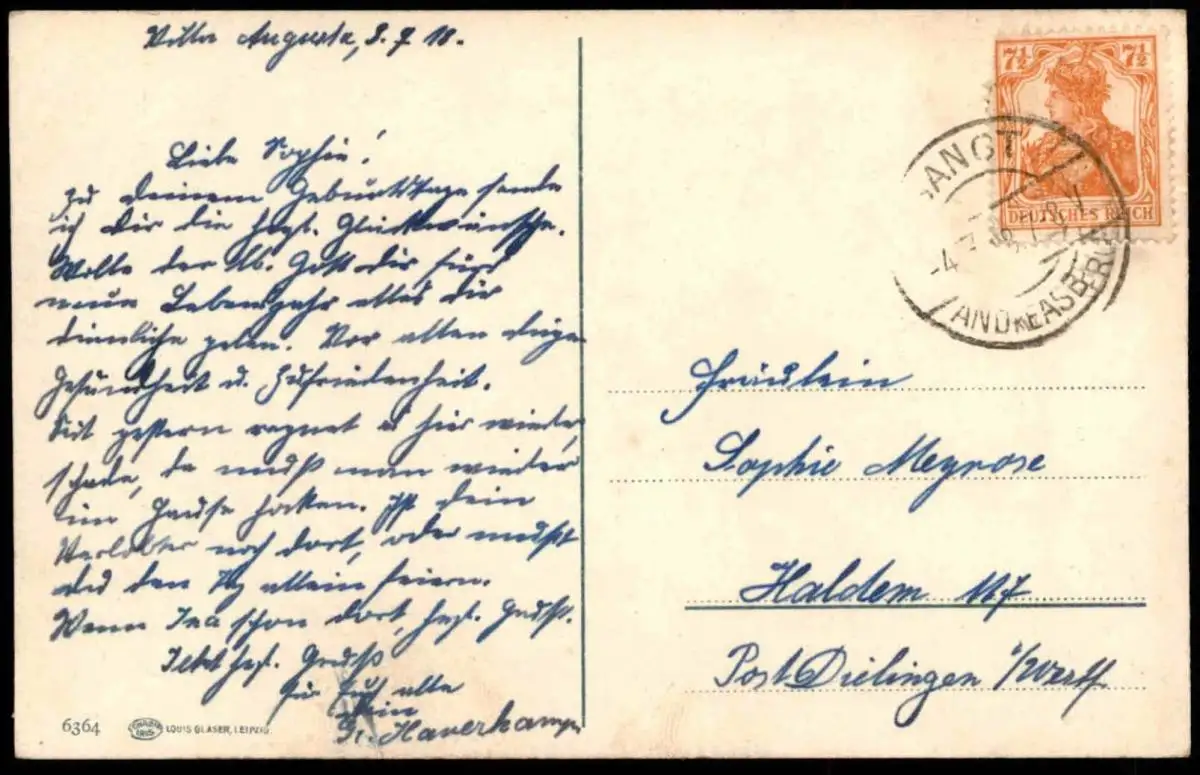 Villa Augusta, 3.7.18.
Liebe Sophie!
Zu deinem Geburtstage sende
ich dir die hrzl. Glückwünsche.
Wolle der lb. Gott dir fürs
neue Lebensjahr alles dir
dienliche geben. Vor allen Dingen
Gesundheit u. Zufriedenheit.
Seit gestern regnet es hier wieder,
schade, da muß man wieder
im Hause hocken. Ist dein
Verlobter noch dort, oder mußt
du den Tag allein feiern.
Wenn Ina schon dort, hrzl. Gruß.
hrzl. Gruß
für Euch alle
Dein
Fr. Haverkamp
6364
LOUIS GLASER, LEIPZIG
7½ 7½
DEUTSCHES REICH
SANGT
ANDREASBERG
Fräulein
Sophie Meyrose
Haldem 117
Post Dielingen i/Westf